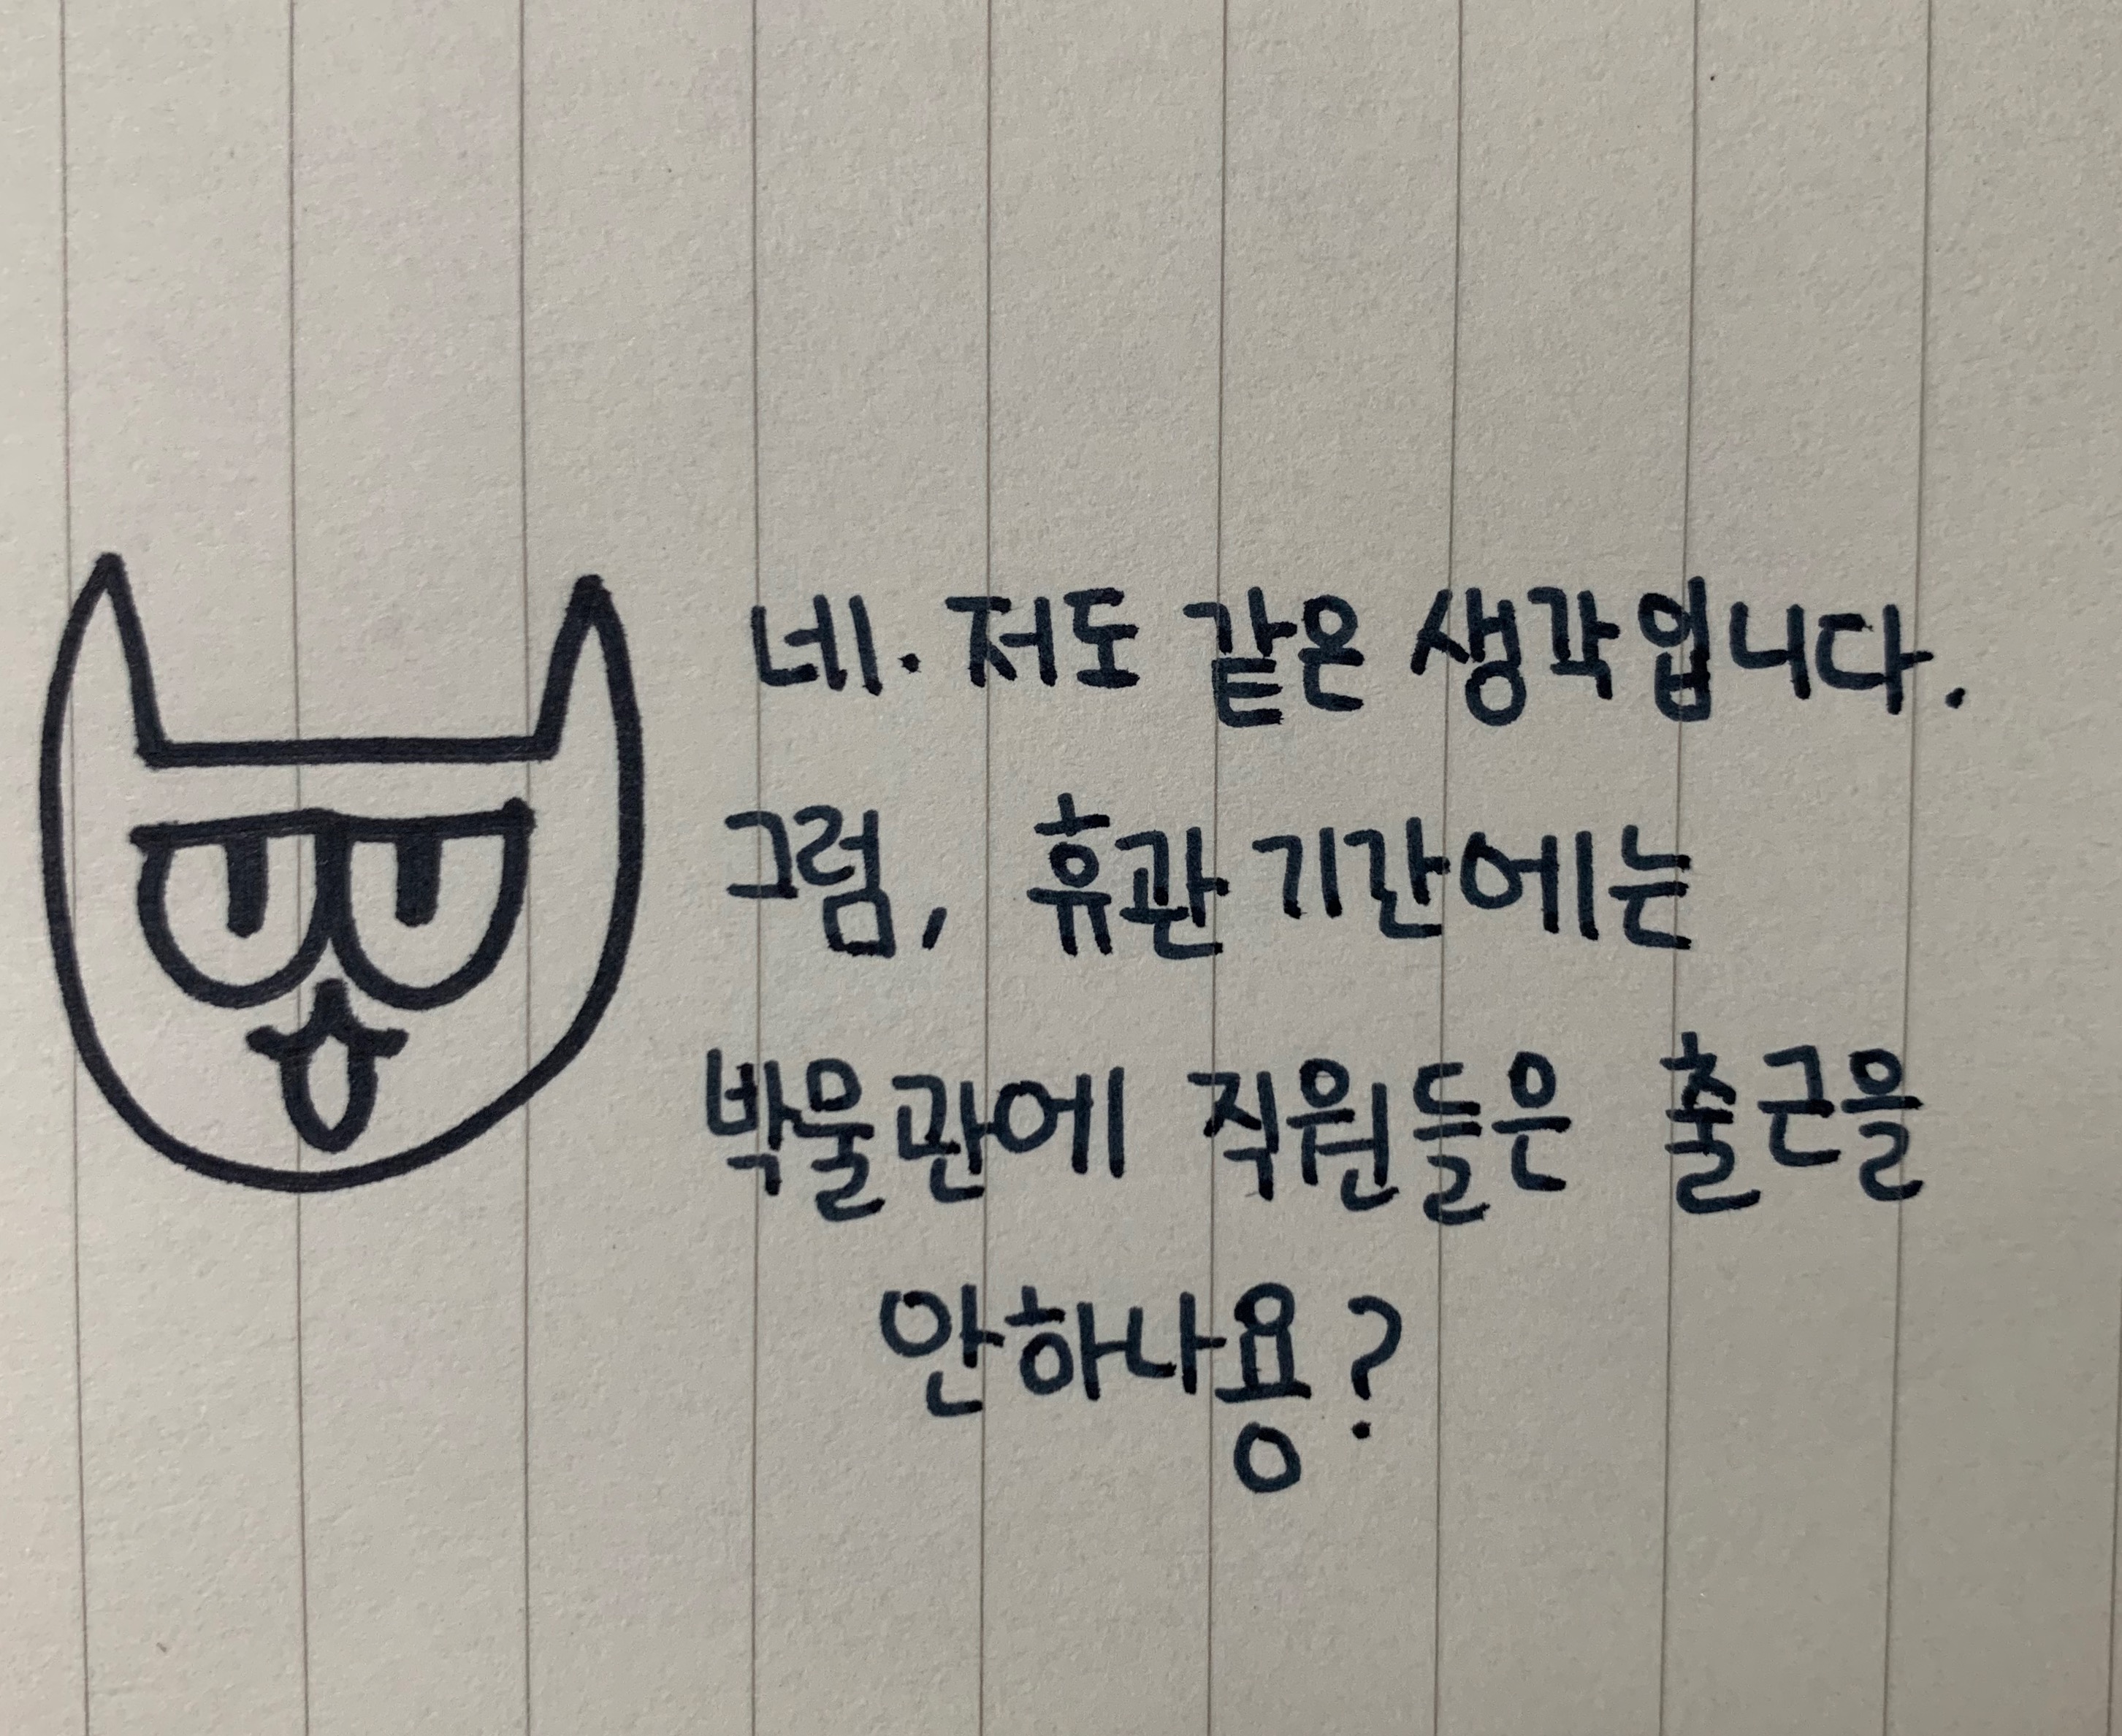 네. 저도 같은 생각입니다.
그럼, 휴관 기간에는
박물관에 직원들은 출근을
안하나용?